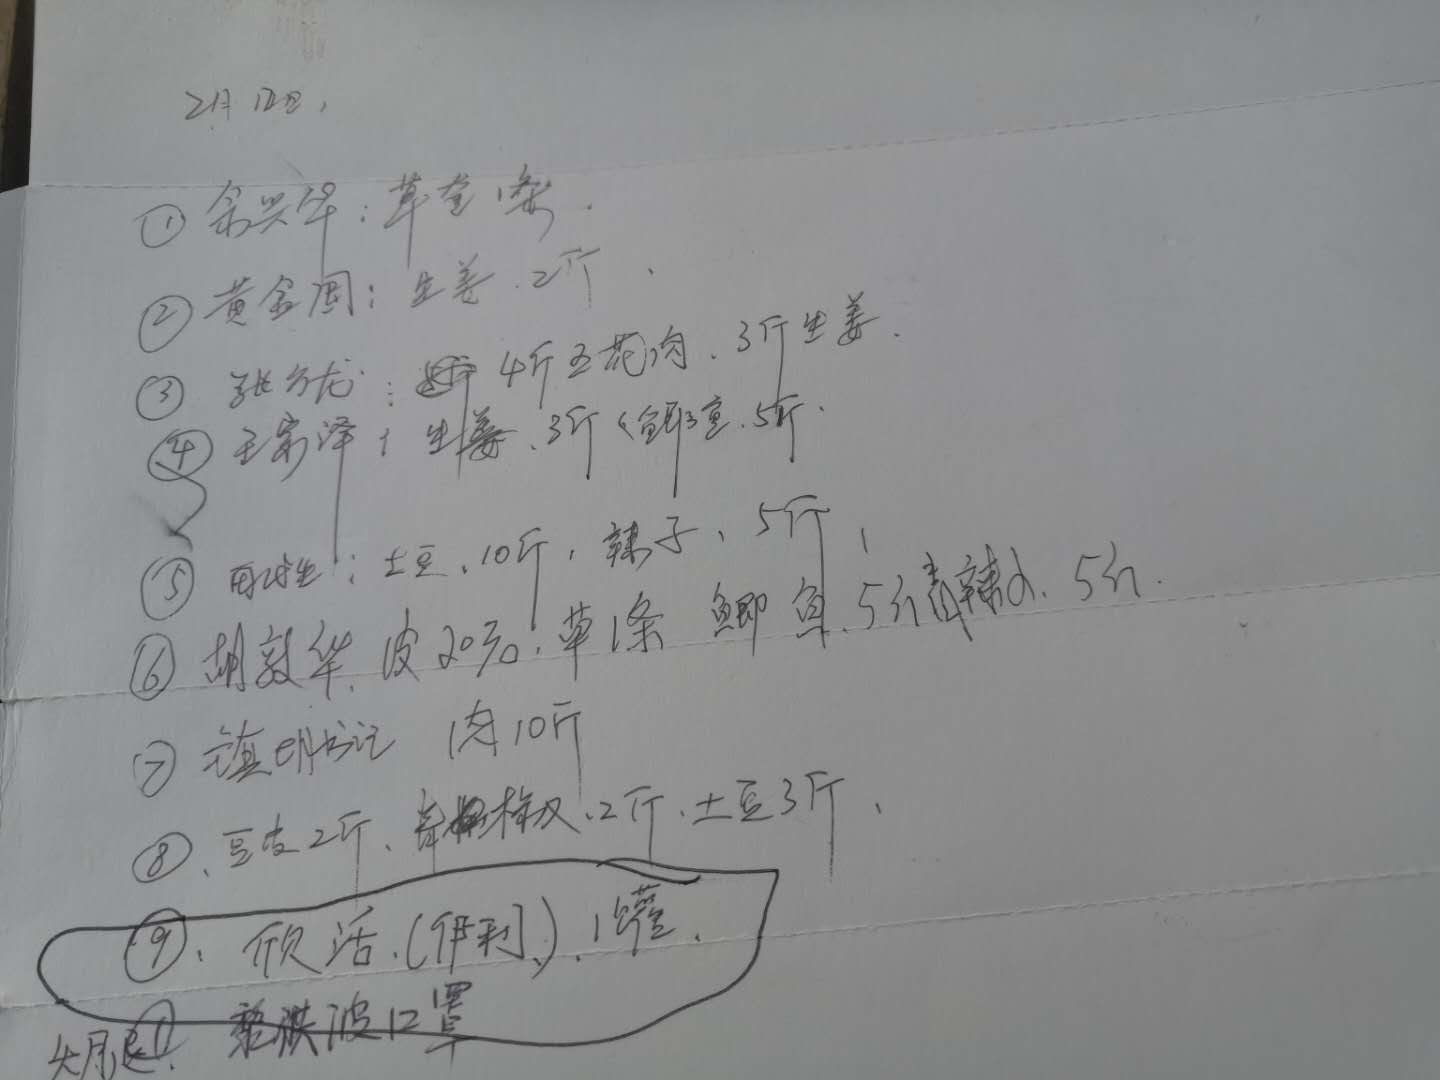 2月12日,
① 余兴华：草鱼1条.
② 黄金周：生姜.2斤、
③ 张方龙：4斤五花肉、3斤生姜.
④ 王家泽：生姜、3斤、鲫鱼、5斤.
⑤ ：土豆、10斤、辣子、5斤,
⑥ 胡敦华、皮20元、草1条 鲫鱼、5斤青辣子、5斤.
⑦ 镇明书记 肉10斤
⑧、豆皮2斤、青椒、2斤、土豆3斤、
⑨、欣活、(伊利)、1罐、
波口罩